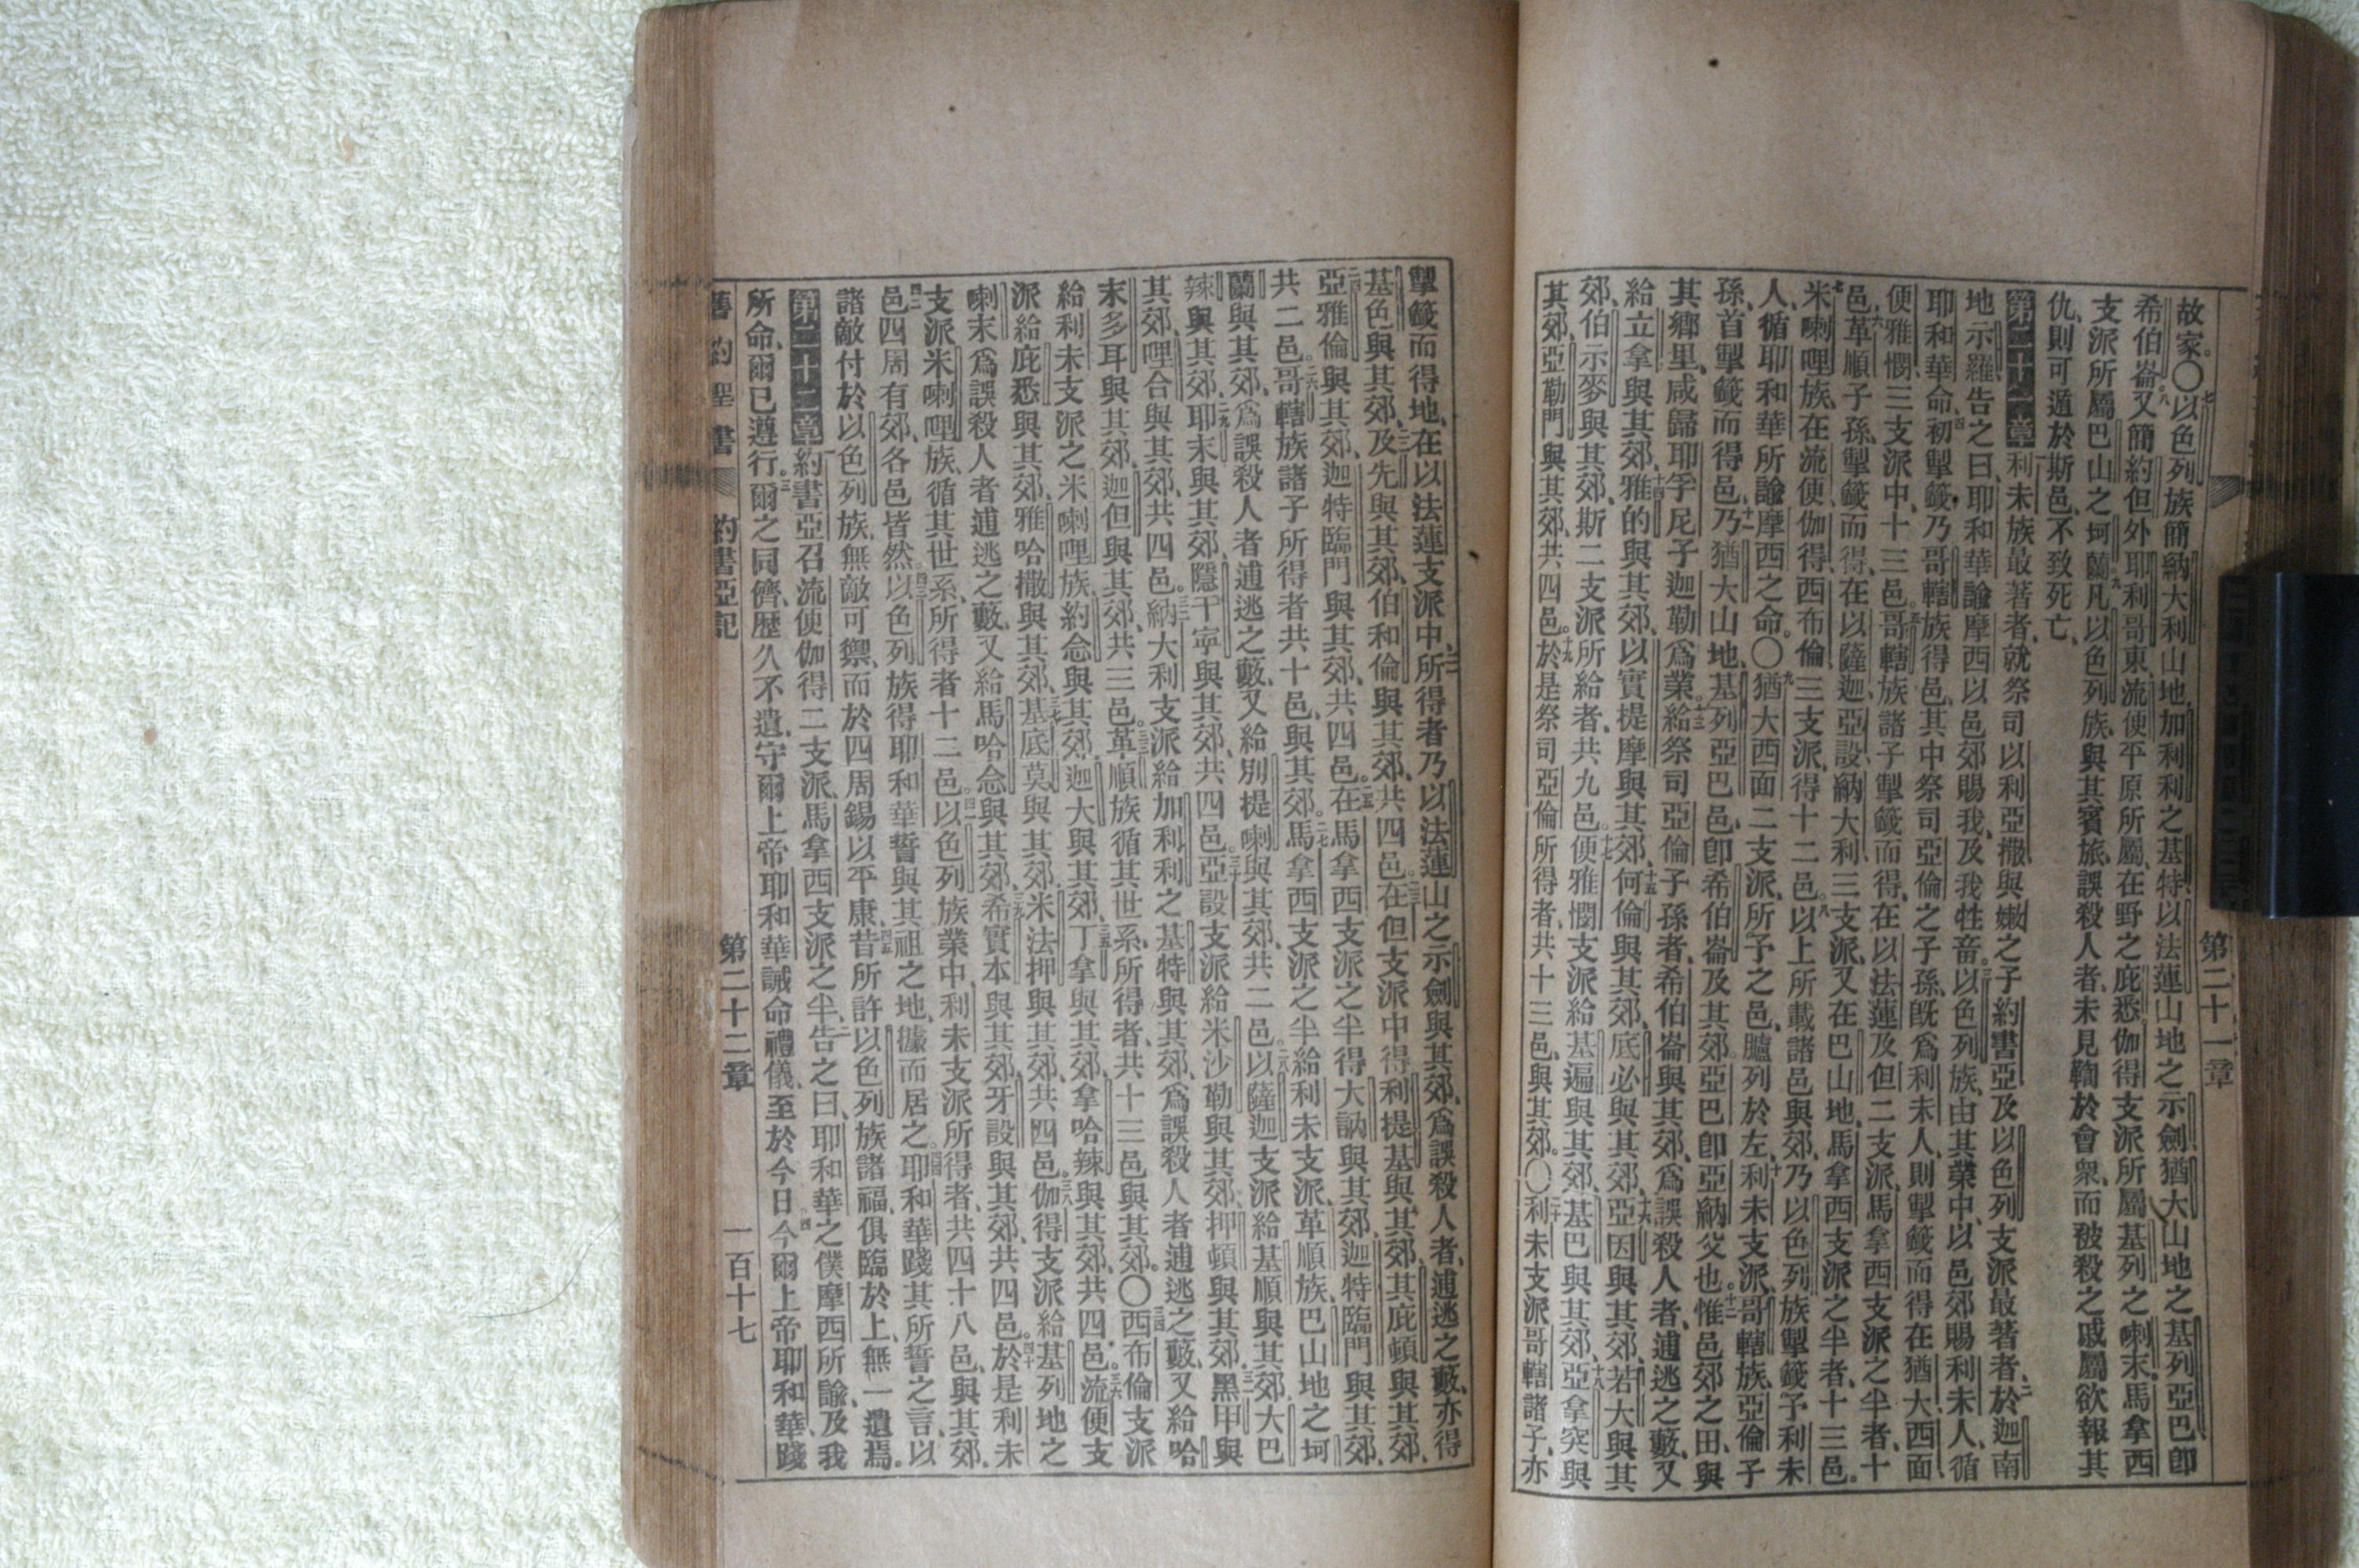 第二十一章
故家。〇七以色列族簡納大利山地、加利利之基特、以法蓮山地之示劍、猶大山地之基列亞巴、卽
希伯崙。八又簡約但外、耶利哥東、流便平原所屬、在野之庇悉、伽得支派所屬、基列之喇末、馬拿西
支派所屬、巴山之坷蘭。九凡以色列族、與其賓旅、誤殺人者、未見鞫於會衆、而被殺之戚屬、欲報其
仇、則可遁於斯邑、不致死亡、
第二十一章 一利未族最著者、就祭司以利亞撒、與嫩之子約書亞、及以色列支派最著者、二於迦南
地示羅告之曰、耶和華諭摩西、以邑郊賜我、及我牲畜。三以色列族、由其業中、以邑郊賜利未人、循
耶和華命。四初掣籤、乃哥轄族得邑、其中祭司亞倫之子孫、旣爲利未人、則掣籤而得、在猶大西面
便雅憫三支派中、十三邑。五哥轄族諸子掣籤而得、在以法蓮及但二支派、馬拿西支派之半者、十
邑。六革順子孫、掣籤而得、在以薩迦、亞設、納大利三支派、又在巴山地、馬拿西支派之半者、十三邑。
七米喇哩族、在流便、伽得、西布倫三支派、得十二邑。八以上所載諸邑與郊、乃以色列族掣籤予利未
人、循耶和華所諭摩西之命。〇九猶大西面二支派、所予之邑、臚列於左、十利未支派、哥轄族、亞倫子
孫、首掣籤而得邑、十一乃猶大山地、基列亞巴邑、卽希伯崙、及其郊。亞巴卽亞納父也。十二惟邑郊之田、與
其鄉里、咸歸耶孚尼子迦勒爲業。十三給祭司亞倫子孫者、希伯崙與其郊、爲誤殺人者、逋逃之藪、又
給立拿與其郊、十四雅的與其郊、以實提摩與其郊、十五何倫與其郊、底必與其郊、十六亞因與其郊、若大與其
郊、伯示麥與其郊、斯二支派所給者、共九邑。十七便雅憫支派給基遍與其郊、基巴與其郊、十八亞拿突與
其郊、亞勒門與其郊、共四邑。十九於是祭司亞倫所得者、共十三邑、與其郊。〇二十利未支派哥轄諸子、亦
掣籤而得地、在以法蓮支派中、二一所得者乃以法蓮山之示劍與其郊、爲誤殺人者、逋逃之藪、亦得
基色與其郊、二二及先與其郊、伯和倫與其郊、共四邑。二三在但支派中、得利提基與其郊、其庇頓與其郊、
二四亞雅倫與其郊、迦特臨門與其郊、共四邑。二五在馬拿西支派之半、得大訥與其郊、迦特臨門與其郊、
共二邑。二六哥轄族諸子所得者、共十邑、與其郊。二七馬拿西支派之半、給利未支派、革順族、巴山地之坷
蘭與其郊、爲誤殺人者逋逃之藪、又給別提喇與其郊、共二邑。二八以薩迦支派給基順與其郊、大巴
辣與其郊、二九耶末與其郊、隱干寧與其郊、共四邑。三十亞設支派給米沙勒與其郊、押頓與其郊、三一黑甲與
其郊、哩合與其郊、共四邑。三二納大利支派給加利利之基特與其郊、爲誤殺人者逋逃之藪、又給哈
末多耳與其郊、迦但與其郊、共三邑。三三革順族循其世系、所得者、共十三邑與其郊。〇三四西布倫支派
給利未支派之米喇哩族、約念與其郊、迦大與其郊、三五丁拿與其郊、拿哈辣與其郊、共四邑。三六流便支
派給庇悉與其郊、雅哈撒與其郊、三七基底莫與其郊、米法押與其郊、共四邑。三八伽得支派給基列地之
喇末、爲誤殺人者逋逃之藪、又給馬哈念與其郊、三九希實本與其郊、牙設與其郊、共四邑。四十於是利未
支派、米喇哩族、循其世系、所得者十二邑。四一以色列族業中、利未支派所得者、共四十八邑、與其郊、
四二邑四周有郊、各邑皆然。四三以色列族得耶和華誓與其祖之地、據而居之。四四耶和華踐其所誓之言、以
諸敵付於以色列族、無敵可禦、而於四周錫以平康、四五昔所許以色列族諸福、俱臨於上、無一遺焉。
第二十二章 一約書亞召流便、伽得二支派、馬拿西支派之半、二告之曰、耶和華之僕摩西所諭、及我
所命、爾已遵行。三爾之同儕、歷久不遺、守爾上帝耶和華誡命禮儀、至於今日。四今爾上帝耶和華、踐
舊約聖書 約書亞記 第二十二章 一百十七